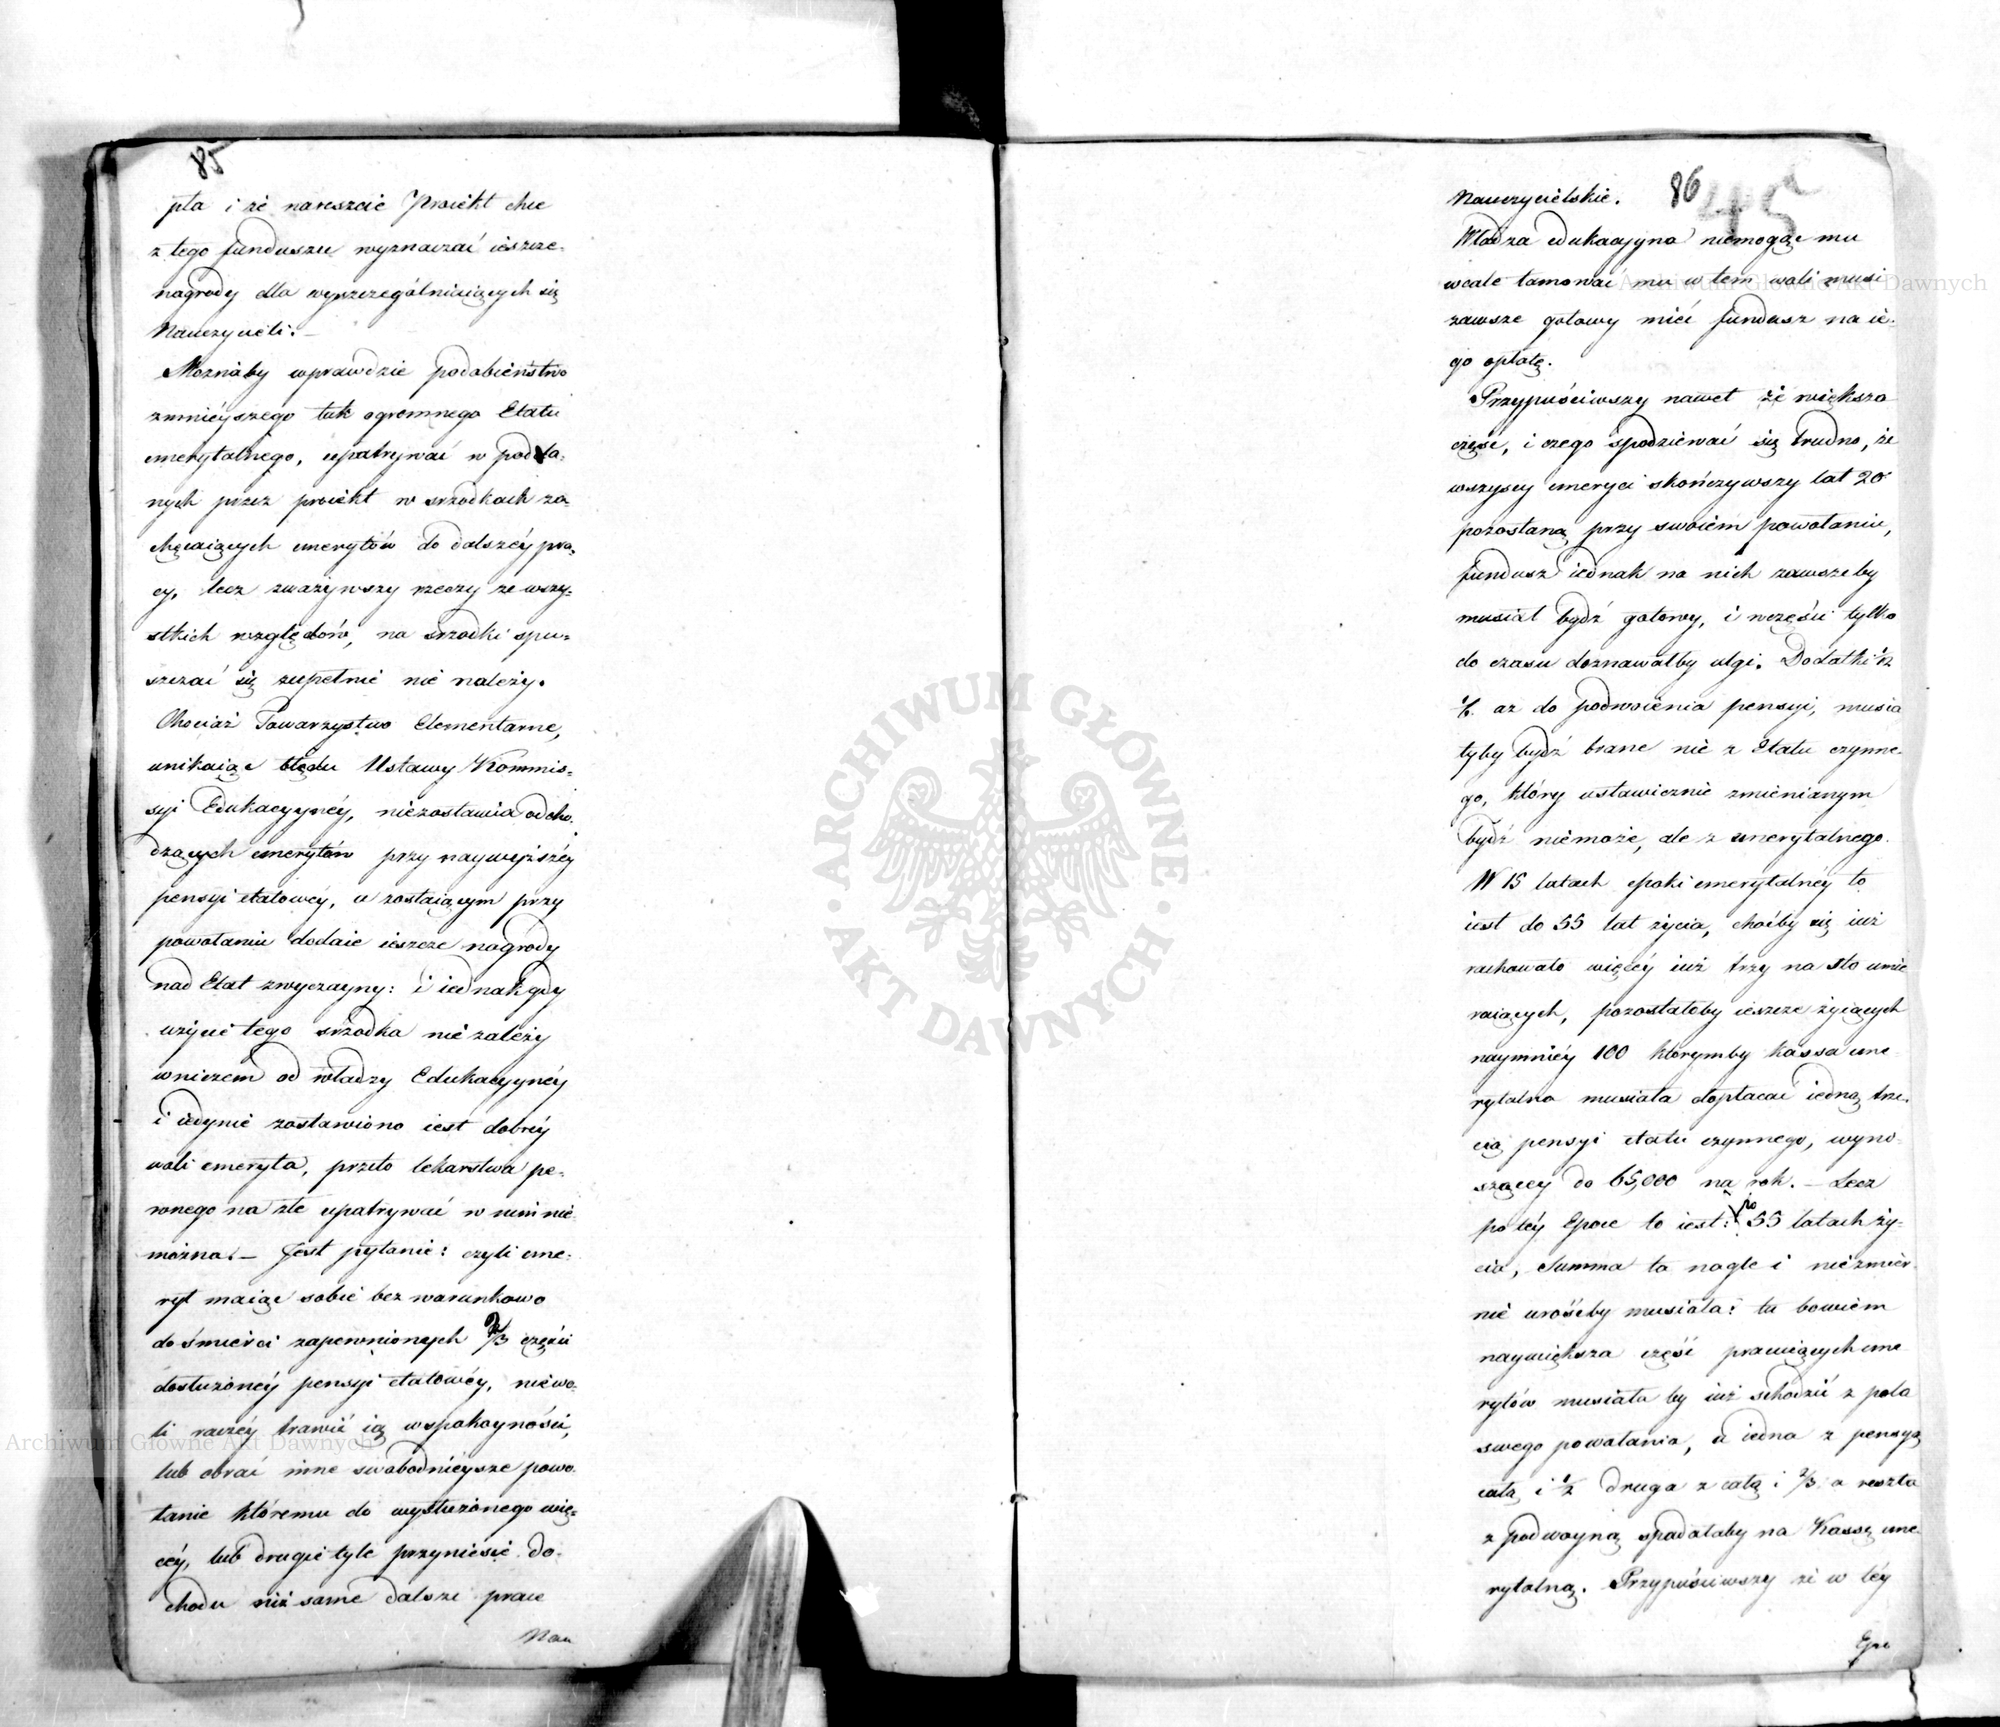 85
pła i że nareszcie Proiekt chce
z tego funduszu wyznaczać ieszcze
nagrody dla wyszczególniaiących się
Nauczycieli. –
Możnaby wprawdzie podobieństwo
zmnieyszego tak ogromnego Etatu
emerytalnego, upatrywać w poda-
nych przez proiekt w srzodkach za-
chęcaiących emerytów do dalszéy pra-
cy, lecz zważywszy rzeczy ze wszy-
stkich względów, na srzodki spu-
szczać się zupełnie nie należy.
Chociaż Towarzystwo Elementarne,
unikaiąc błędu Ustawy Kommis-
syi Edukacyynéy, niezostawia odcho-
dzących emerytów przy naywyższéy
pensyi etatowéy, a zostaiącym przy
powołaniu dodaie ieszcze nagrody
nad Etat zwyczayny: i iednak gdy
użycie tego srzodka nie zależy
wniczem od władzy Edukacyynéy
i iedynie zostawiono iest dobréy
woli emeryta, przeto lekarstwa pe-
wnego na złe upatrywać w nim nie
można. – Jest pytanie: czyli eme-
ryt maiąc sobie bez warunkowo
do śmierci zapewnionych 2/3 części
dosłużonéy pensyi etatowéy, niewo-
li raczéy trawić ią wspokoyności,
lub obrać inne swobodnieysze powo-
łanie któremu do wysłużonego wię-
céy, lub drugie tyle przyniesie do-
chodu niż same dalsze prace
Nau
86 45
Nauczycielskie.
Władza edukacyyna niemogąc mu
wcale tamować mu w tem woli musi
zawsze gotowy mieć fundusz na ie-
go opłatę.
Przypuściwszy nawet że większa
część, i czego spodziewać się trudno, że
wszyscy emeryci skończywszy lat 20
pozostaną przy swoiem powołaniu,
fundusz iednak na nich zawszeby
musiał bydź gotowy, i wczęści tylko
do czasu doznawałby ulgi. Dodatki 1/2
az do podwoienia pensyi, musia
łyby bydź brane nie z Etatu czynne-
go, który ustawicznie zmienianym
bydź niemoże, ale z emerytalnego.
W 15 latach epoki emerytalnéy to
iest do 55 lat życia, choćby się iuż
rachowało więcéy iuż trzy na sto umie
raiących, pozostałoby ieszcze żyiących
naymniéy 100 którymby kassa eme-
rytalna musiała dopłacać iedną trze-
cią pensyi etatu czynnego, wyno-
szącéy do 65,000 na rok. – Lecz
po téy Epoce to iest: po 55 latach ży-
cia, Summa ta nagle i niezmier-
nie urośćby musiała: tu bowiem
naywiększa część pracuiących eme
rytów musiała by iuż schodzić z pola
swego powołania, a iedna z pensyą
całą i 1/2 druga z całą i 2/3 a reszta
z podwoyną spadałaby na Kassę eme-
rytalną. Przypuściwszy że w téy
Epo
ARCHIWUM GŁÓWNE
AKT DAWNYCH
Archiwum Główne Akt Dawnych
Archiwum Główne Akt Dawnych